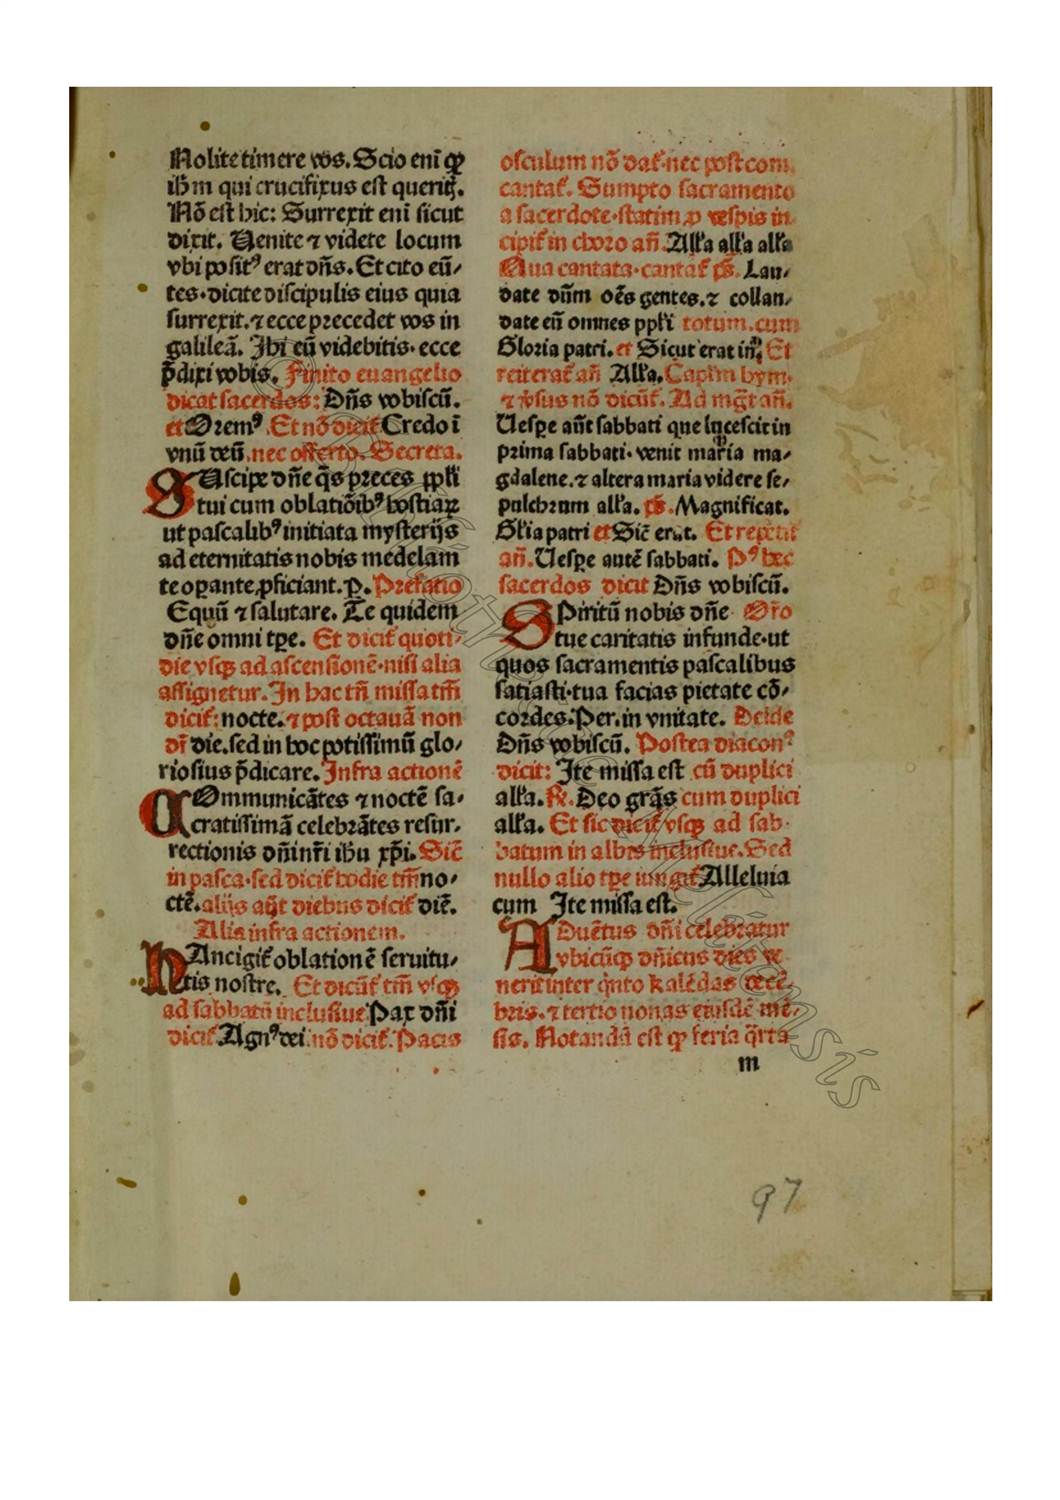 Nolite timere vos. Scio eni ꝙ
ihm qui crucifixus est queritꝭ.
Nō est hic: Surrexit eni sicut
dixit. Uenite ⁊ videte locum
vbi posit⁹ erat dn̄s. Et cito eū/
tes.dicite discipulis eius quia
surrexit.⁊ ecce precedet vos in
galileā. Ibi eū videbitis.ecce
p̄dixi vobis. Finito euangelio
dicat sacerdos: Dn̄s vobiscū.
et Orem⁹. Et nō dicit̄ Credo ī
vnū deū. nec offerto. Secreta.
SUscipe dn̄e q̄s preces ppl̄i
tui cum oblatiōib⁹ hostiaꝝ
ut pascalib⁹ initiata mysterijs
ad eternitatis nobis medelam
te oꝑante ꝓficiant. ꝑ. Prefatio
Equū ⁊ salutare. Te quidem
dn̄e omni tp̄e. Et dicit̄ quoti/
die vsqꝫ ad ascensionē.nisi alia
assignetur. In hac tn̄ missa tm̄
dicit̄: nocte. ⁊ post octauā non
dr̄ die. sed in hoc potissimū glo/
riosius p̄dicare. Infra actionē
COmmunicātes ⁊ noctē sa/
cratissimā celebrātes resur/
rectionis dn̄i nr̄i ihū xp̄i. Sic̄
in pasca.sed dicit̄ hodie tm̄ no/
ctē. alijs aūt diebus dicit̄ diē.
Alia infra actionem.
HAncigit̄ oblationē seruitu/
tis nostre. Et dicūt̄ tm̄ vsqꝫ
ad sabbatū inclusiue Pax dn̄i
dicit̄. Agn⁹ dei. nō dicit̄. Pacis
osculum nō dat̄.nec post com.
cantat̄. Sumpto sacramento
a sacerdote.statim ꝓ vespis in
cipit̄ in choro an̄. All'a all'a all'a
Qua cantata.cantat̄ ps̄. Lau/
date dūm oēs gentes.⁊ collau/
date eū omnes ppl̄i totum. cum
Gloria patri. et Sicut erat in. Et
reiterat̄ an̄ All'a. Caplm hym.
⁊ v̄sus nō dicūt̄. Ad mḡt an̄.
Uespe aūt sabbati que lucescit in
prima sabbati. venit maria ma/
gdalene.⁊ altera maria videre se/
pulchrum all'a. ps̄. Magnificat.
Gl'ia patri et Sic̄ erat. Et repetit̄
an̄. Uespe autē sabbati. P⁹ hec
sacerdos dicit Dn̄s vobiscū.
SPiritū nobis dn̄e Or̄o
tue caritatis infunde.ut
quos sacramentis pascalibus
satiasti.tua facias pietate cō/
cordes. Per. in vnitate. Deīde
Dn̄s vobiscū. Postea diacon⁹
dicit: Ite missa est cū duplici
all'a. ℟. Deo grās cum duplici
all'a. Et sic dicit̄ vsqꝫ ad sab
batum in albis inclusiue. Sed
nullo alio tp̄e iungit̄ Alleluia
cum Ite missa est.
ADuētus dn̄i celebratur
vbicūqꝫ dn̄icus dies ve
nerit inter q̄nto kalēdas decē
bris.⁊ tertio nonas eiusdē mē/
sis. Notandū est ꝙ feria q̄rta
m
97
© Bibliotheca Uusoliensis